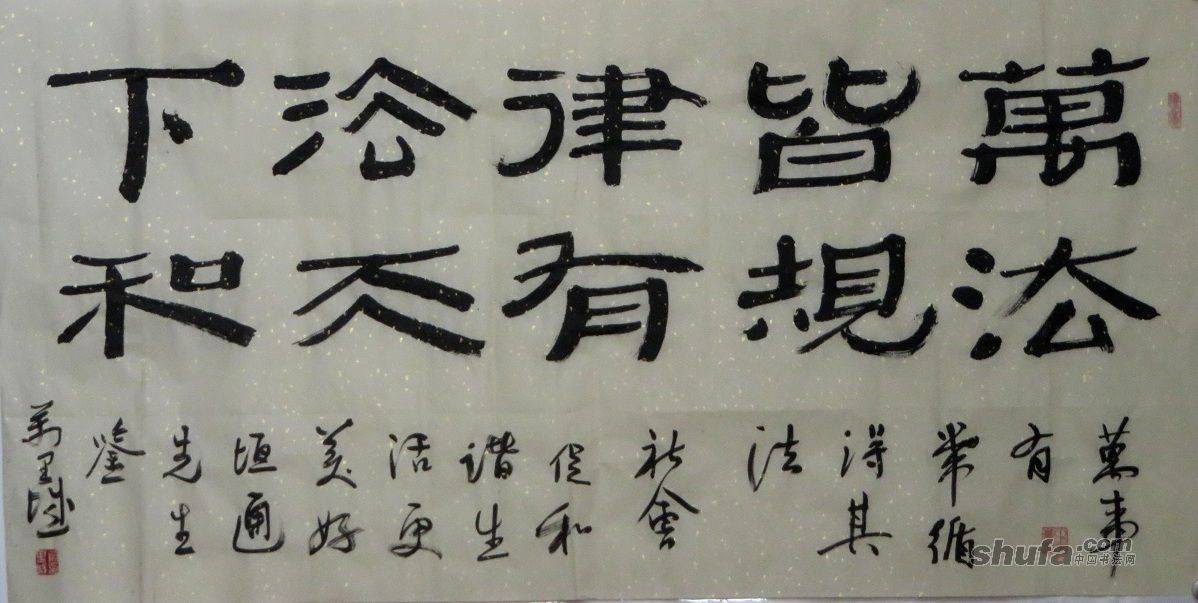 萬法
皆規
律有
法天
下和
萬事
有
常循
得其
法
社會
促和
諧生
活更
美好
垣通
先生
鉴
萬里城
shufa.com
中国书法网